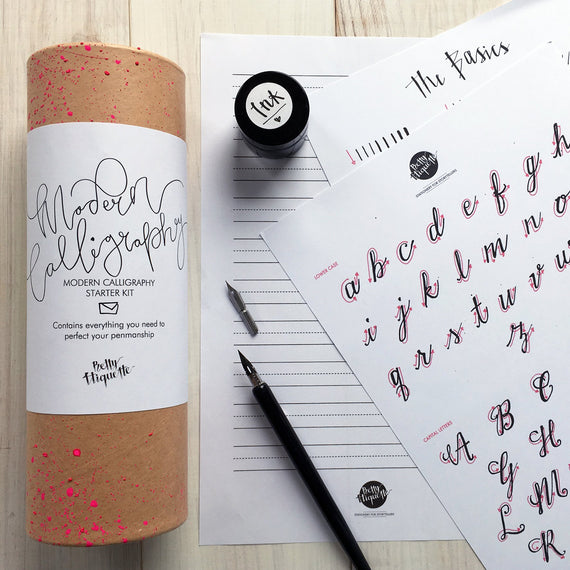 Modern
Calligraphy
MODERN CALLIGRAPHY
STARTER KIT
Contains everything you need to
perfect your penmanship
Betty
Etiquette
Ink
The Basics
Betty
Etiquette
STATIONERY FOR STORYTELLERS
LOWER CASE
a b c d e f g h
i j k l m n o
q r s t u v
z
CAPITAL LETTERS
A B C
G H
L M
R
Betty
Etiquette
STATIONERY FOR STORYTELLERS